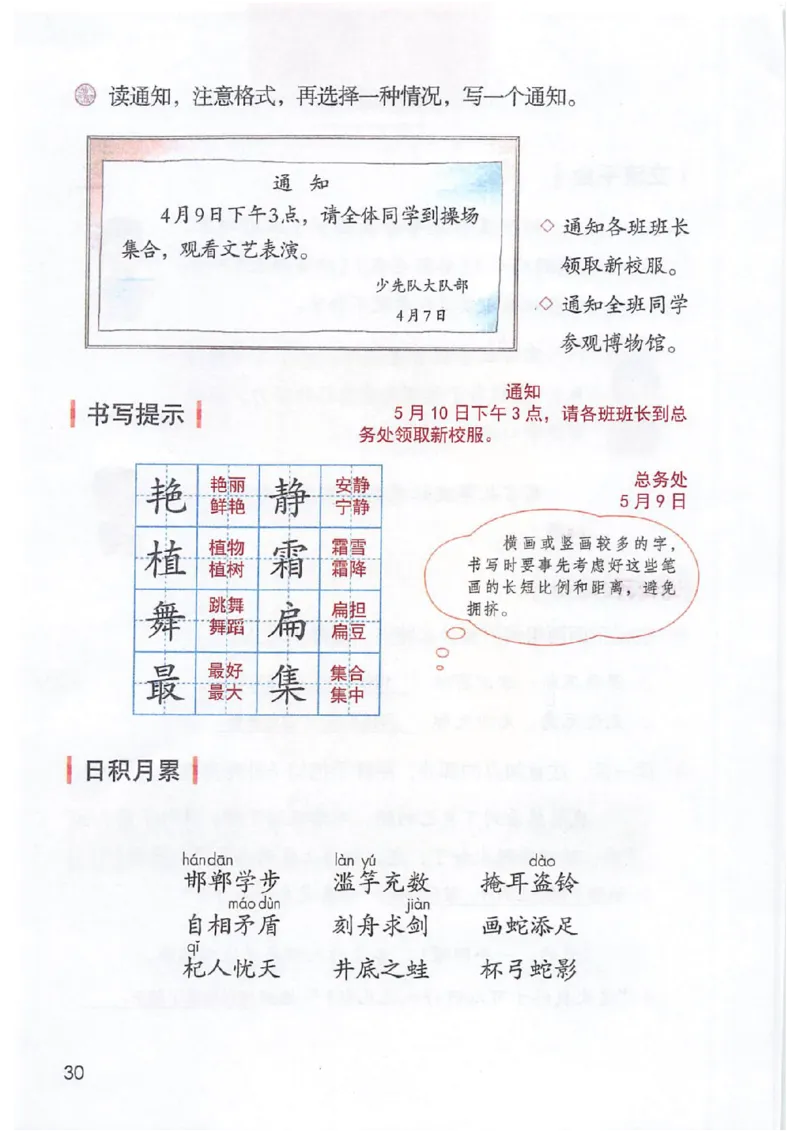 读通知，注意格式，再选择一种情况，写一个通知。
通 知
4月9日下午3点，请全体同学到操场
集合，观看文艺表演。
少先队大队部
4月7日
◇ 通知各班班长
领取新校服。
◇ 通知全班同学
参观博物馆。
通知
5月10日下午3点，请各班班长到总
务处领取新校服。
总务处
5月9日
书写提示
艳 艳丽 鲜艳 静 安静 宁静
植 植物 植树 霜 霜雪 霜降
舞 跳舞 舞蹈 扁 扁担 扁豆
最 最好 最大 集 集合 集中
横画或竖画较多的字，
书写时要事先考虑好这些笔
画的长短比例和距离，避免
拥挤。
日积月累
hándān làn yú dào
邯郸学步 滥竽充数 掩耳盗铃
máodùn jiàn
自相矛盾 刻舟求剑 画蛇添足
qǐ
杞人忧天 井底之蛙 杯弓蛇影
30